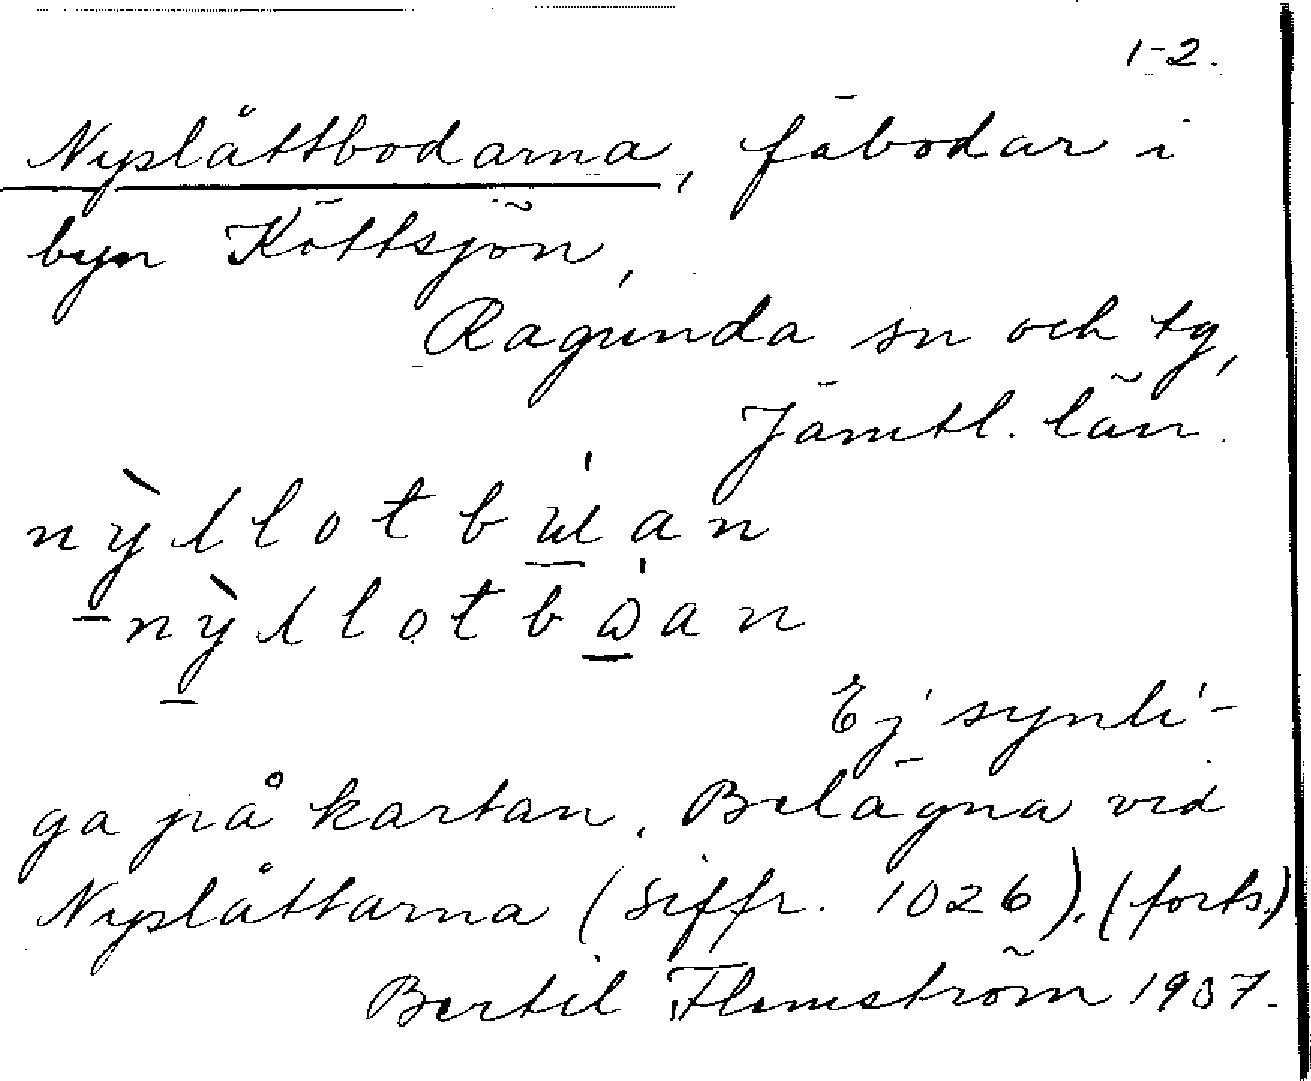 1-2.
Nyslåttbodarna, fäbodar i
byn Köttsjön,
Ragunda sn och tg,
Jämtl. län.
Ej synli-
ga på kartan. Belägna vid
Nyslåttarna (siffr. 1026). (forts.)
Bertil Flemström 1937.